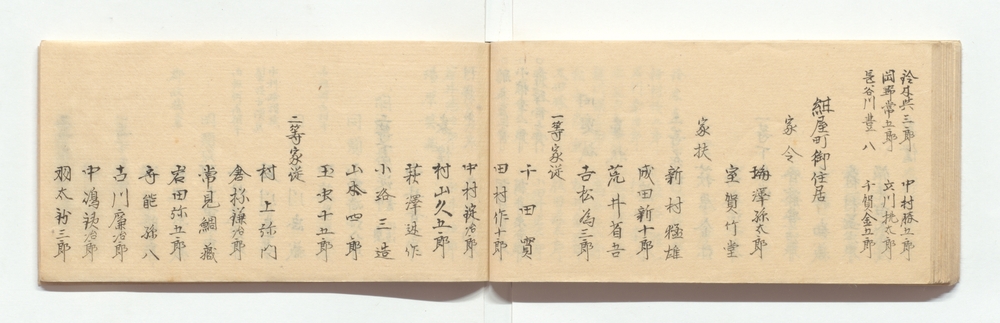 鈴木興三郎
岡野常五郎
長谷川豊八
中村勝五郎
立川桃太郎
千賀金五郎
紺屋町御住居
家令
梅澤孫太郎
室賀竹堂
家扶
新村猛雄
成田新十郎
荒井省吾
吉松為三郎
一等家従
千田實
田村作十郎
中村錠治郎
村山久五郎
萩澤廷作
小路三造
山本四郎
玉虫十五郎
二等家従
村上弥門
倉林謙治郎
常見綱蔵
岩田弥五郎
寺能孫八
吉川廉治郎
中鴻鉄治郎
羽太為三郎